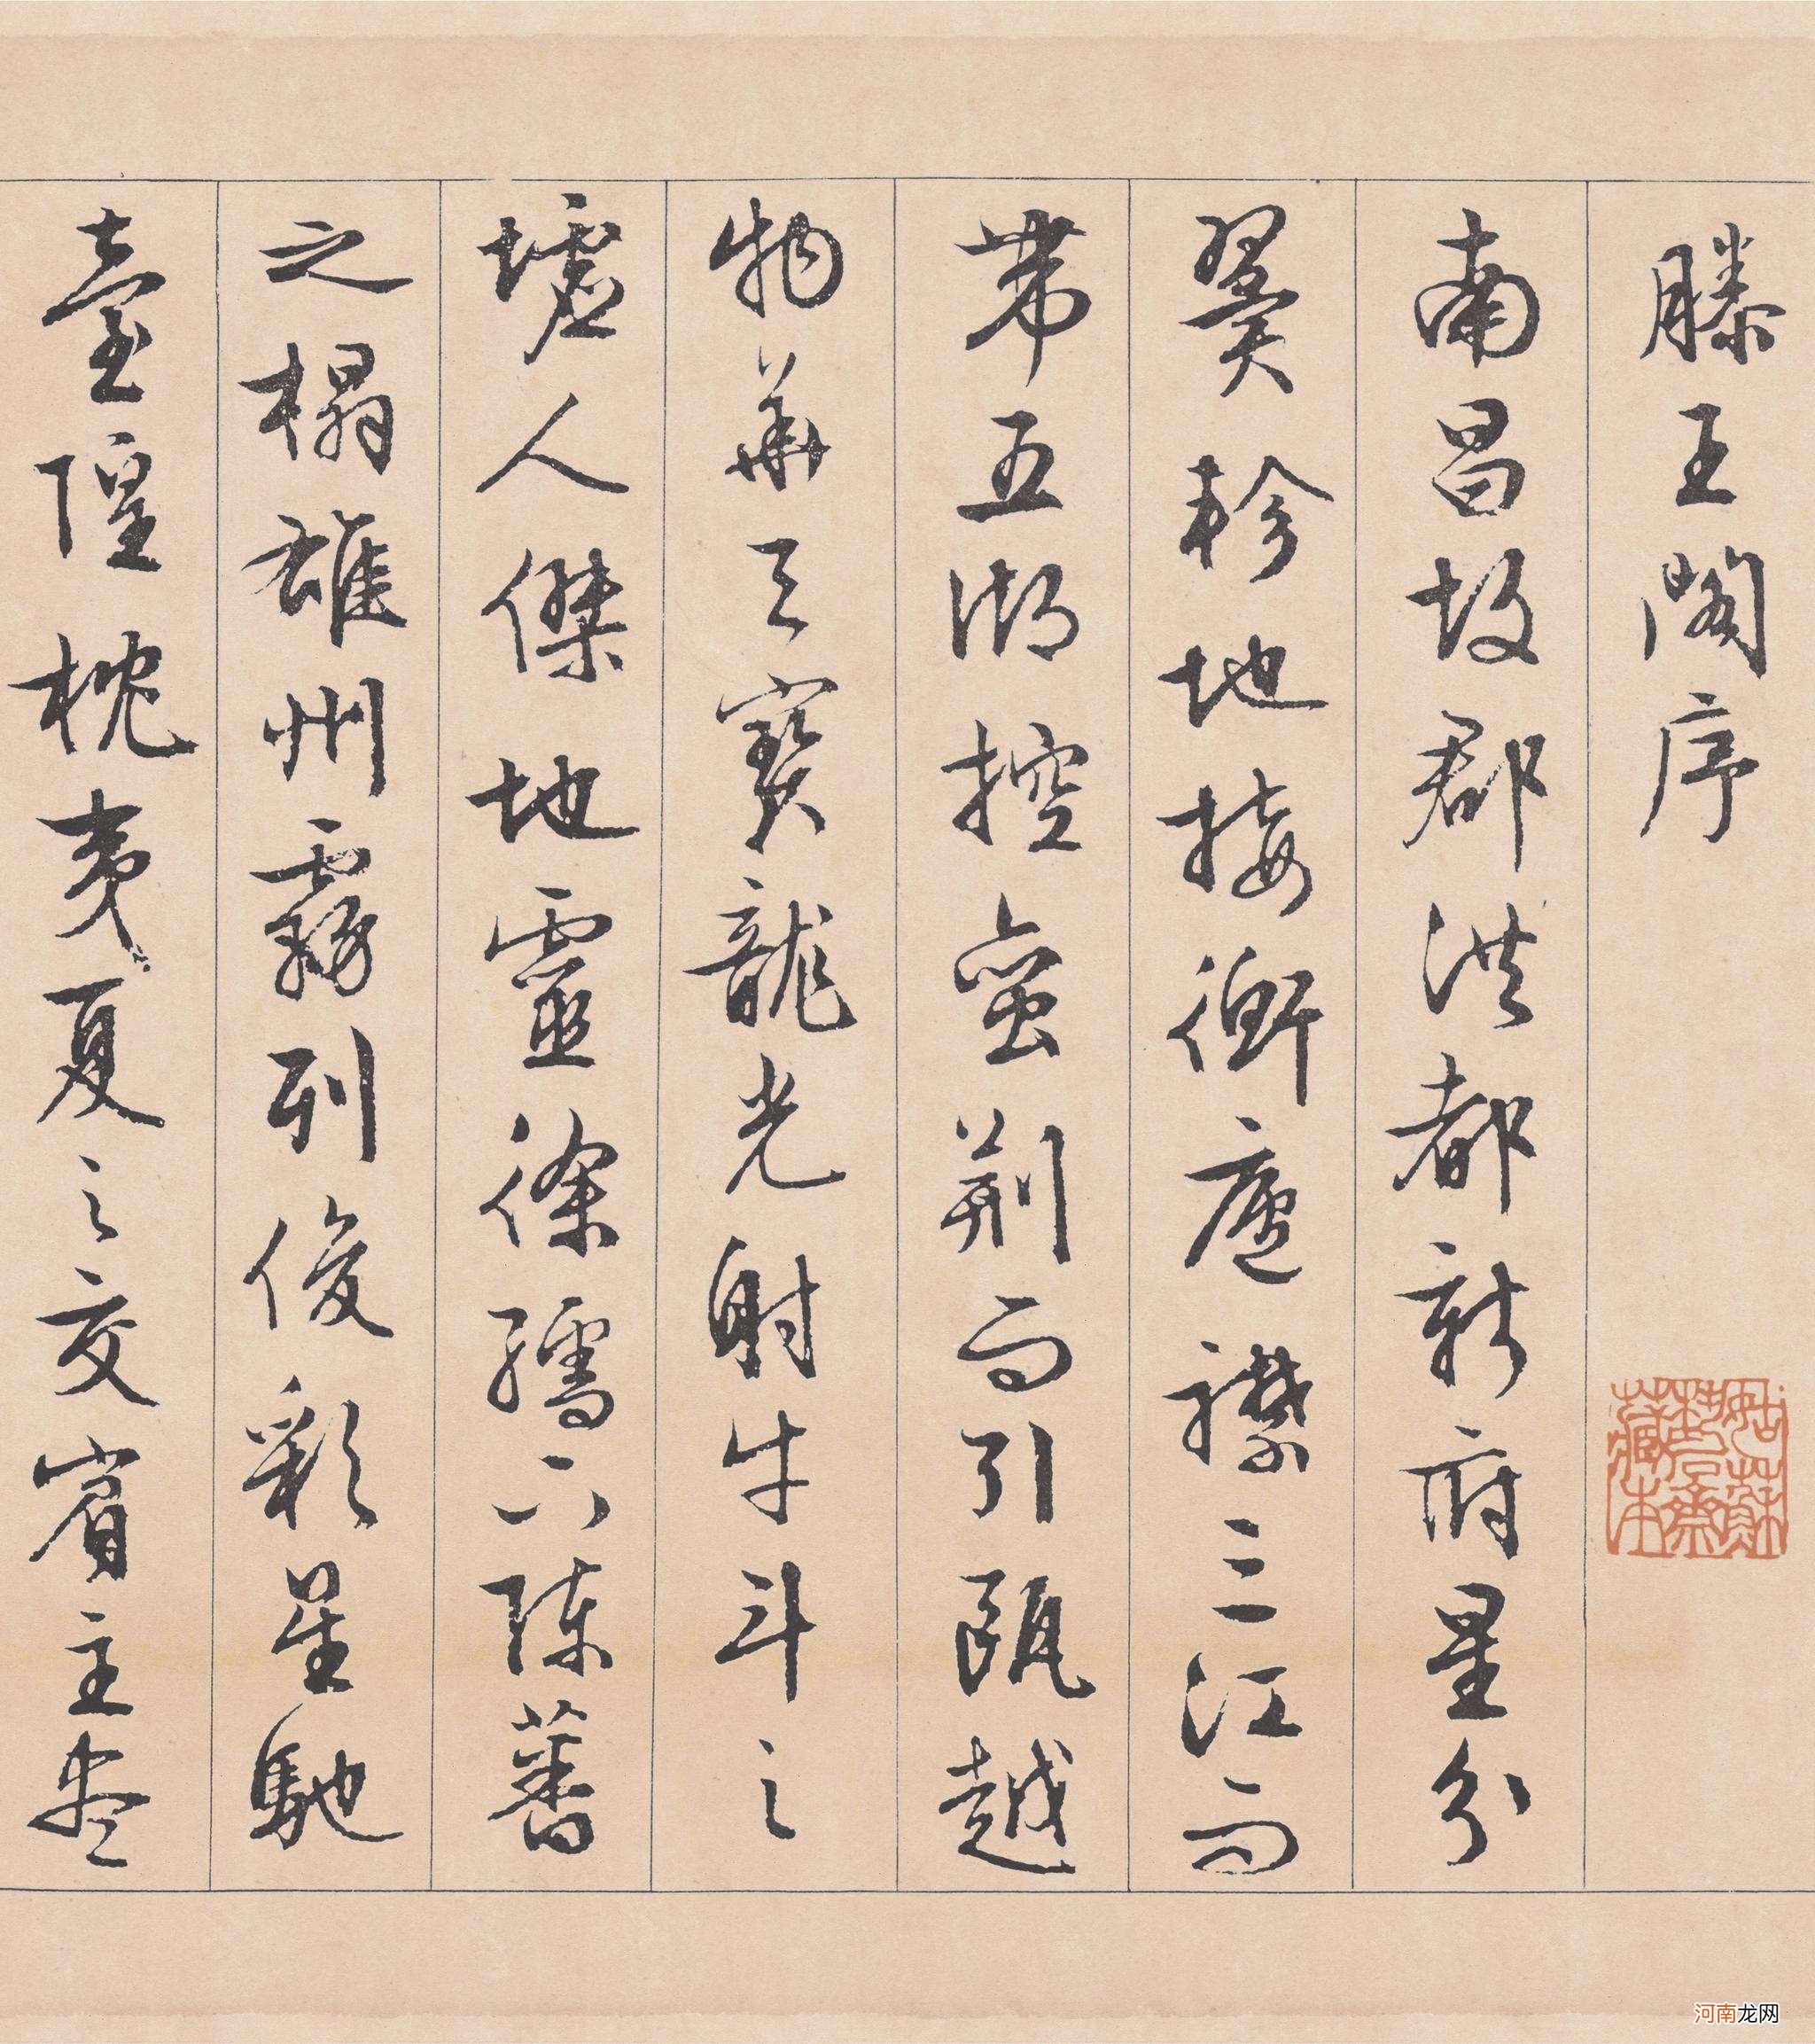 滕王閣序
南昌故郡洪都新府星分
翼軫地接衡廬襟三江而
帶五湖控蛮荊而引甌越
物華天寶龍光射牛斗之
墟人傑地靈徐孺下陳蕃
之榻雄州霧列俊彩星馳
臺隍枕夷夏之交賓主盡
河南龙网